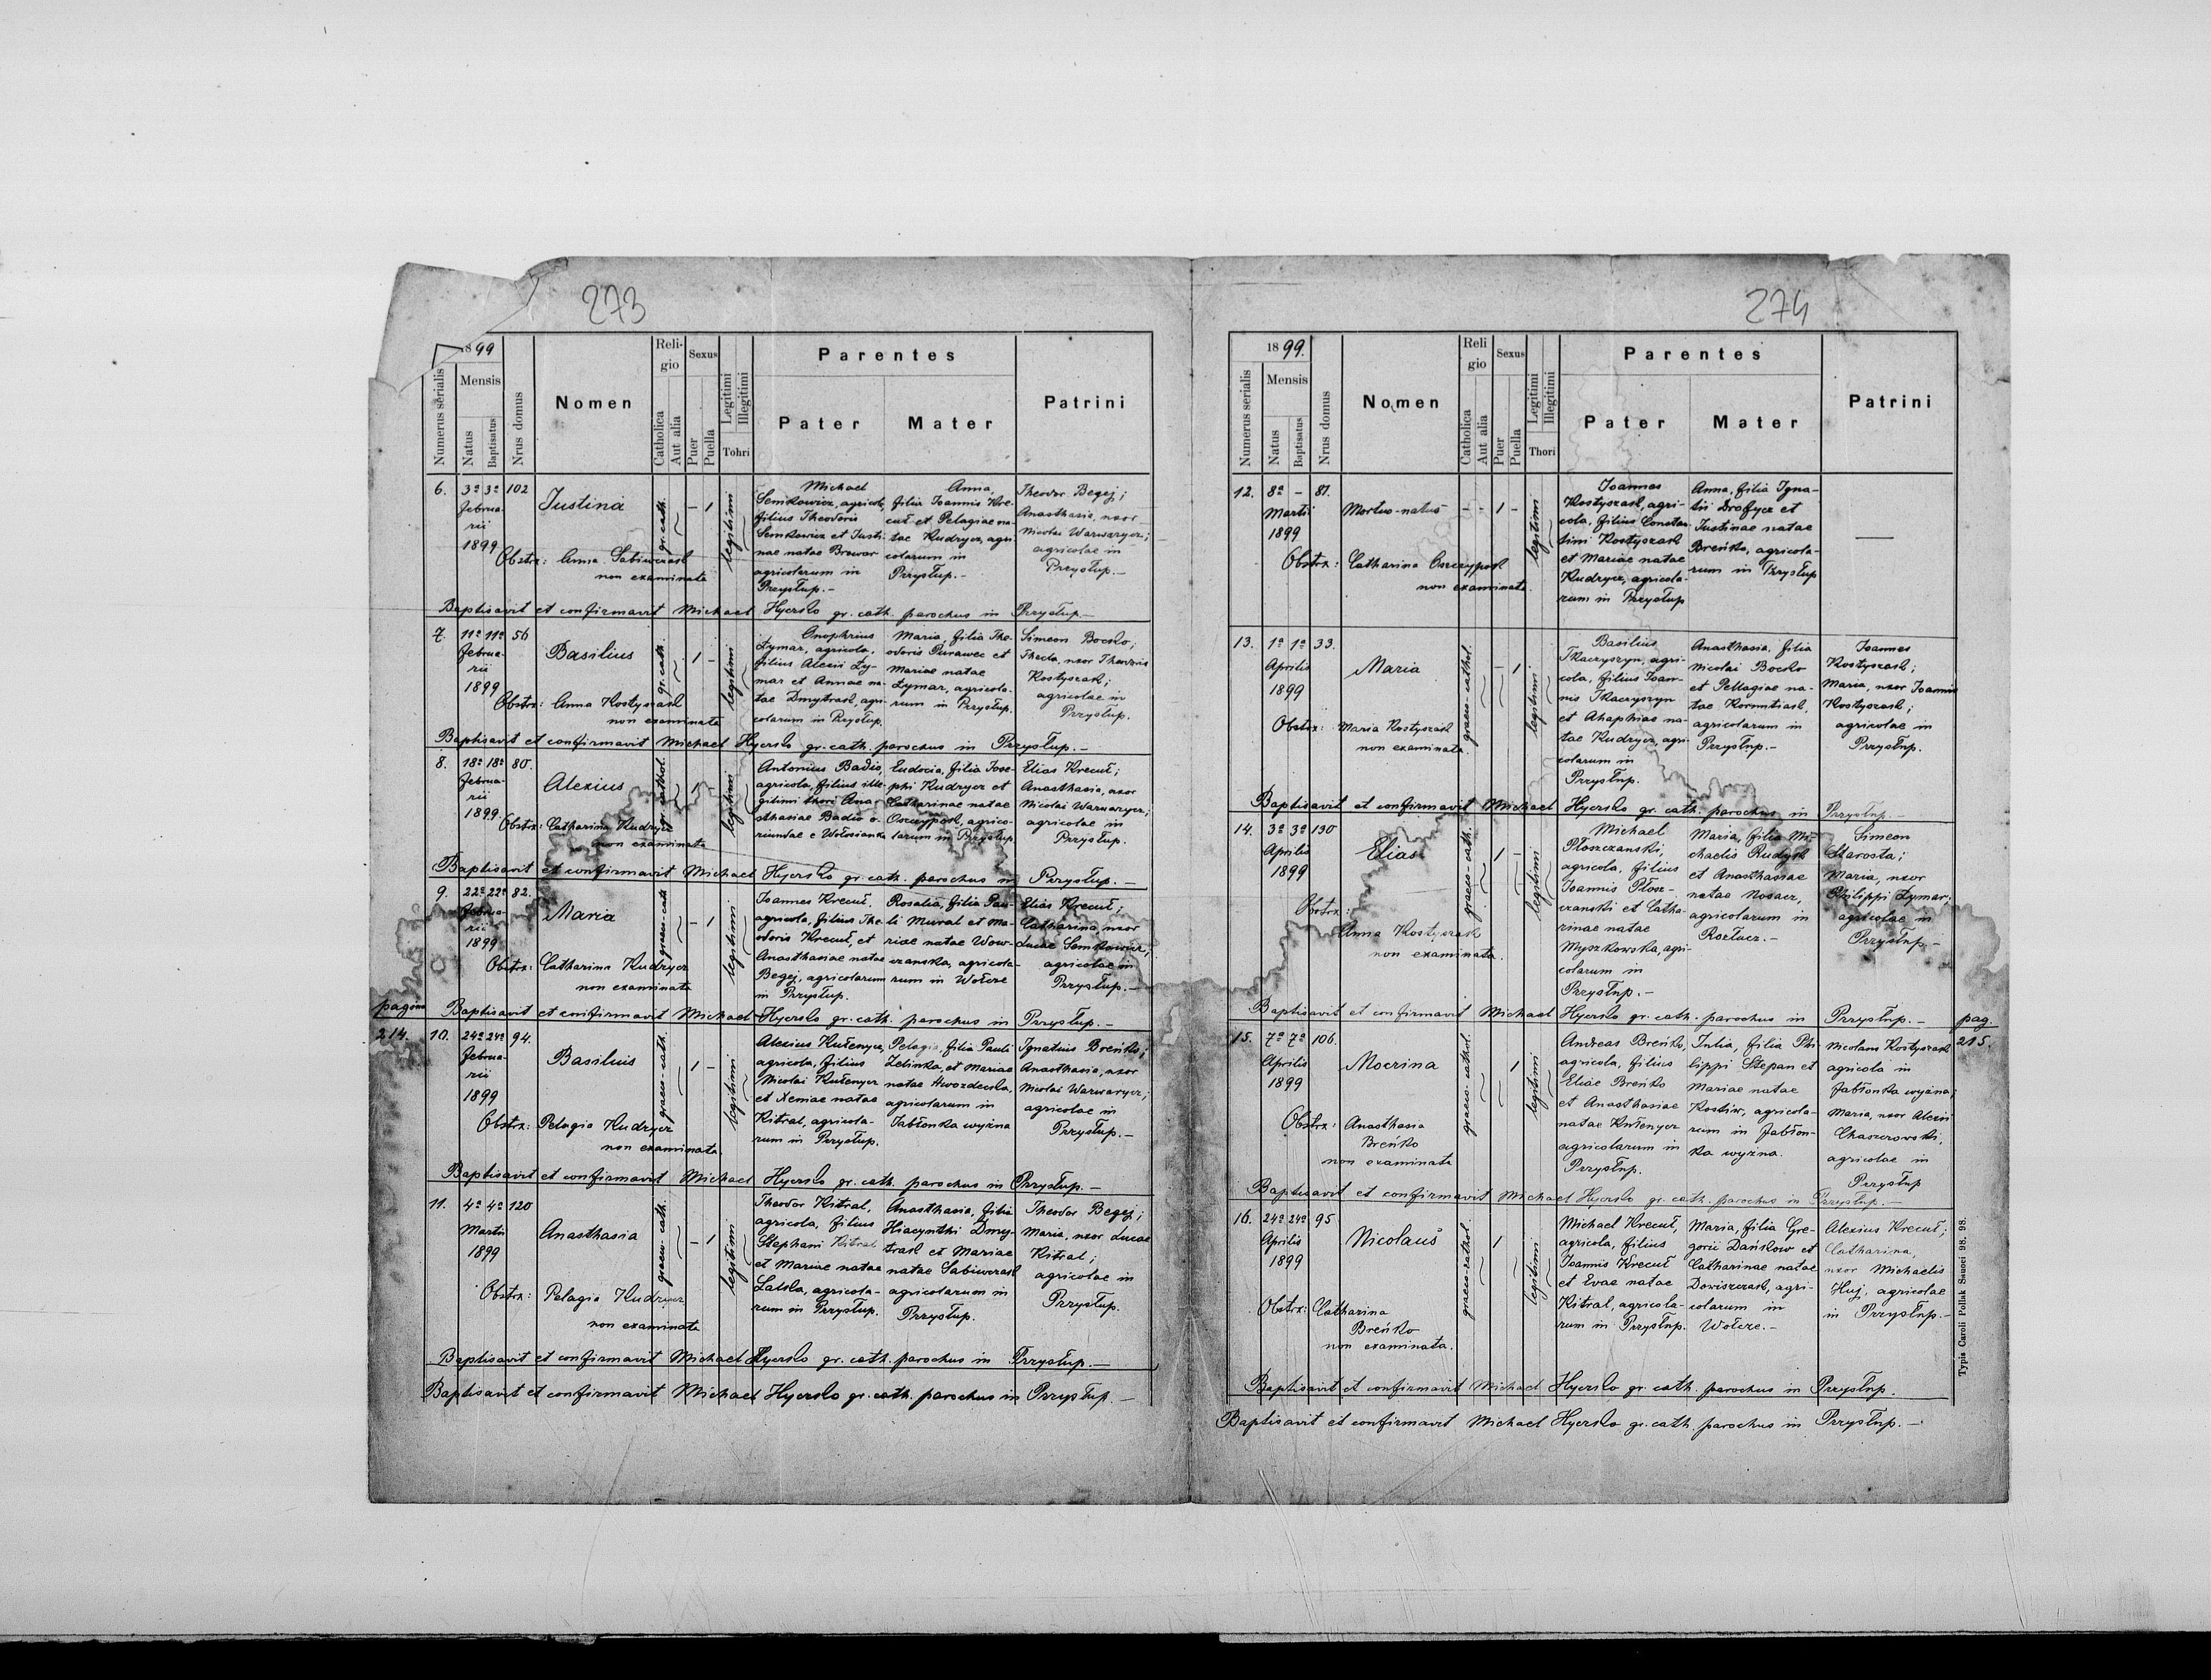 273
1899
Numerus serialis
Mensis
Natus
Baptisatus
Nrus domus
Nomen
Reli-
gio
Catholica
Aut alia
Sexus
Puer
Puella
Legitimi
Illegitimi
Tohri
Parentes
Pater
Mater
Patrini
6. 3a 3a 102
Februa-
rii
1899
Justina
gr. cath.
- 1
legitimi
Michael
Semkowicz, agricola,
filius Theodoris
Semkowicz et Justi-
nae natae Browar
agricolarum in
Przysłup.-
Anna,
filia Joannis Kre-
cuł et Pelagiae na-
tae Kudrycz, agri-
colarum in
Przysłup.-
Theodor Begej;
Anasthasia, uxor
Nicolai Warwarycz;
agricolae in
Przysłup.-
Obstr: Anna Sabiwczak
non examinata
Baptisavit et confirmavit Michael Hyerslo gr. cath. parochus in Przysłup.-
7. 11a 11a 56
Februa-
rii
1899
Basilius
gr. cath.
1 -
legitimi
Onophrius
Łymar, agricola,
filius Alexii Ły-
mar et Annae na-
tae Dmytrask, agri-
colarum in Przysłup.
Maria, filia The-
odoris Purawec et
Mariae natae
Łymar, agricola-
rum in Przysłup.
Simeon Bocko,
Thecla, uxor Theodoris
Kostyszak;
agricolae in
Przysłup.
Obstr: Anna Kostyszask
non examinata
Baptisavit et confirmavit Michael Hyerslo gr. cath. parochus in Przysłup.-
8. 18a 18a 80.
Februa-
rii
1899
Alexius
cathol.
1 -
legitimi
Antonius Badio,
agricola, filius ille-
gitimi thori Ana-
sthasiae Badio o-
riundae e Wołosianka
Eudocia, filia Jose-
phi Kudrycz et
Catharinae natae
Oszczypok, agrico-
larum in Przysłup
Elias Krecuł;
Anasthasia, uxor
Nicolai Warwarycz;
agricolae in
Przysłup.
Obstr: Catharina Kudrycz
non examinata
Baptisavit et confirmavit Michael Hyerslo gr. cath. parochus in Przysłup.-
9. 22a 22a 82.
Februa-
rii
1899
Maria
graeco-cath
- 1
legitimi
Joannes Krecuł,
agricola, filius The-
odoris Krecuł, et
Anasthasiae natae
Begej, agricolarum
in Przysłup.
Rosalia, filia Pau-
li Mural et Ma-
riae natae Wow-
czanska, agricola-
rum in Wołcze
Elias Krecuł;
Catharina, uxor
Lucae Semkowicz,
agricolae in
Przysłup.-
Obstr: Catharina Kudrycz
non examinata
pagina Baptisavit et confirmavit Michael Hyerslo gr. cath. parochus in Przysłup.-
214. 10. 24a 24a 94.
Februa-
rii
1899
Basilius
graeco-cath.
1 -
legitimi
Alexius Kułenycz,
agricola, filius
Nicolai Kułenycz
et Xeniae natae
Kitral, agricola-
rum in Przysłup.
Pelagia, filia Pauli
Zelinka, et Mariae
natae Hwozdecka,
agricolarum in
Jabłonka wyżna
Ignatius Breńko;
Anasthasia, uxor
Nicolai Warwarycz;
agricolae in
Przysłup.-
Obstr: Pelagia Kudrycz
non examinata
Baptisavit et confirmavit Michael Hyerslo gr. cath. parochus in Przysłup.-
11. 4a 4a 120
Martii
1899
Anasthasia
graeco-cath.
- 1
legitimi
Theodor Kitral,
agricola, filius
Stephani Kitral
et Mariae natae
Latska, agricola-
rum in Przysłup.
Anasthasia, filia
Hiacynthi Dmy-
trask et Mariae
natae Sabiwczask
agricolarum in
Przysłup.
Theodor Begej;
Maria, uxor Lucae
Kitral;
agricolae in
Przysłup.
Obstr: Pelagia Kudrycz
non examinata
Baptisavit et confirmavit Michael Hyerslo gr. cath. parochus in Przysłup.-
Baptisavit et confirmavit Michael Hyerslo gr. cath. parochus in Przysłup.-
274
1899.
Numerus serialis
Mensis
Natus
Baptisatus
Nrus domus
Nomen
Reli
gio
Catholica
Aut alia
Sexus
Puer
Puella
Legitimi
Illegitimi
Thori
Parentes
Pater
Mater
Patrini
12. 8a - 81.
Martii
1899
Mortuo-natus
- - 1 -
legitimi
Joannes
Kostyszask, agri-
cola, filius Constan-
tini Kostyszask
et Mariae natae
Kudrycz, agricola-
rum in Przysłup
Anna, filia Igna-
tii Drofycz et
Justinae natae
Breńko, agricola-
rum in Przysłup
—
Obstr: Catharina Oszczypok
non examinata.
13. 1a 1a 33.
Aprilis
1899
Maria
graeco-cathol.
- 1
legitimi
Basilius
Tkaczyszyn, agri-
cola, filius Joan-
nis Tkaczyszyn
et Ahaphiae na-
tae Kudrycz, agri-
colarum in
Przysłup.
Anasthasia, filia
Nicolai Bocko
et Pellagiae na-
tae Kormitiask,
agricolarum in
Przysłup.-
Joannes
Kostyszask;
Maria, uxor Joannis
Kostyszask;
agricolae in
Przysłup.
Obstr: Maria Kostyszask
non examinata.
Baptisavit et confirmavit Michael Hyerslo gr. cath. parochus in Przysłup.-
14. 3a 3a 130
Aprilis
1899
Elias
graeco-cath.
1 -
legitimi
Michael
Płoszczanski,
agricola, filius
Joannis Płosz-
czanski et Catha-
rinae natae
Myszkowska, agri-
colarum in
Przysłup.-
Maria, filia Mi-
chaelis Rudysk
et Anasthasiae
natae Nosacz,
agricolarum in
Rozłucz.-
Simeon
Starosta;
Maria, uxor
Philippi Łymar;
agricolae in
Przysłup.-
Obstr:
Anna Kostyszak
non examinata.
Baptisavit et confirmavit Michael Hyerslo gr. cath. parochus in Przysłup.- pag.
215.
15. 7a 7a 106.
Aprilis
1899
Mocrina
graeco-cathol.
1
legitimi
Andreas Breńko,
agricola, filius
Eliae Breńko
et Anasthasiae
natae Kułenycz
agricolarum in
Przysłup.
Julia, filia Phi-
lippi Stepan et
Mariae natae
Kostiw, agricola-
rum in Jabłon-
ka wyżna.
Nicolaus Kostyszask
agricola in
Jabłonka wyżna;
Maria, uxor Alexii
Chaszczowski,
agricolae in
Przysłup
Obstr: Anasthasia
Breńko
non examinata
Baptisavit et confirmavit Michael Hyerslo gr. cath. parochus in Przysłup.-
16. 24a 24a 95
Aprilis
1899
Nicolaus
graeco-cathol.
1
legitimi
Michael Krecuł,
agricola, filius
Joannis Krecuł
et Evae natae
Kitral, agricola-
rum in Przysłup.
Maria, filia Gre-
gorii Dańkow et
Catharinae natae
Dowiszczask, agri-
colarum in
Wołcze.-
Alexius Krecuł;
Catharina,
uxor Michaelis
Huj, agricolae
in Przysłup.-
Obstr: Catharina
Breńko
non examinata.
Baptisavit et confirmavit Michael Hyerslo gr. cath. parochus in Przysłup.
Baptisavit et confirmavit Michael Hyerslo gr. cath. parochus in Przysłup.-
Typis Caroli Pollak Sanoci 98. 98.